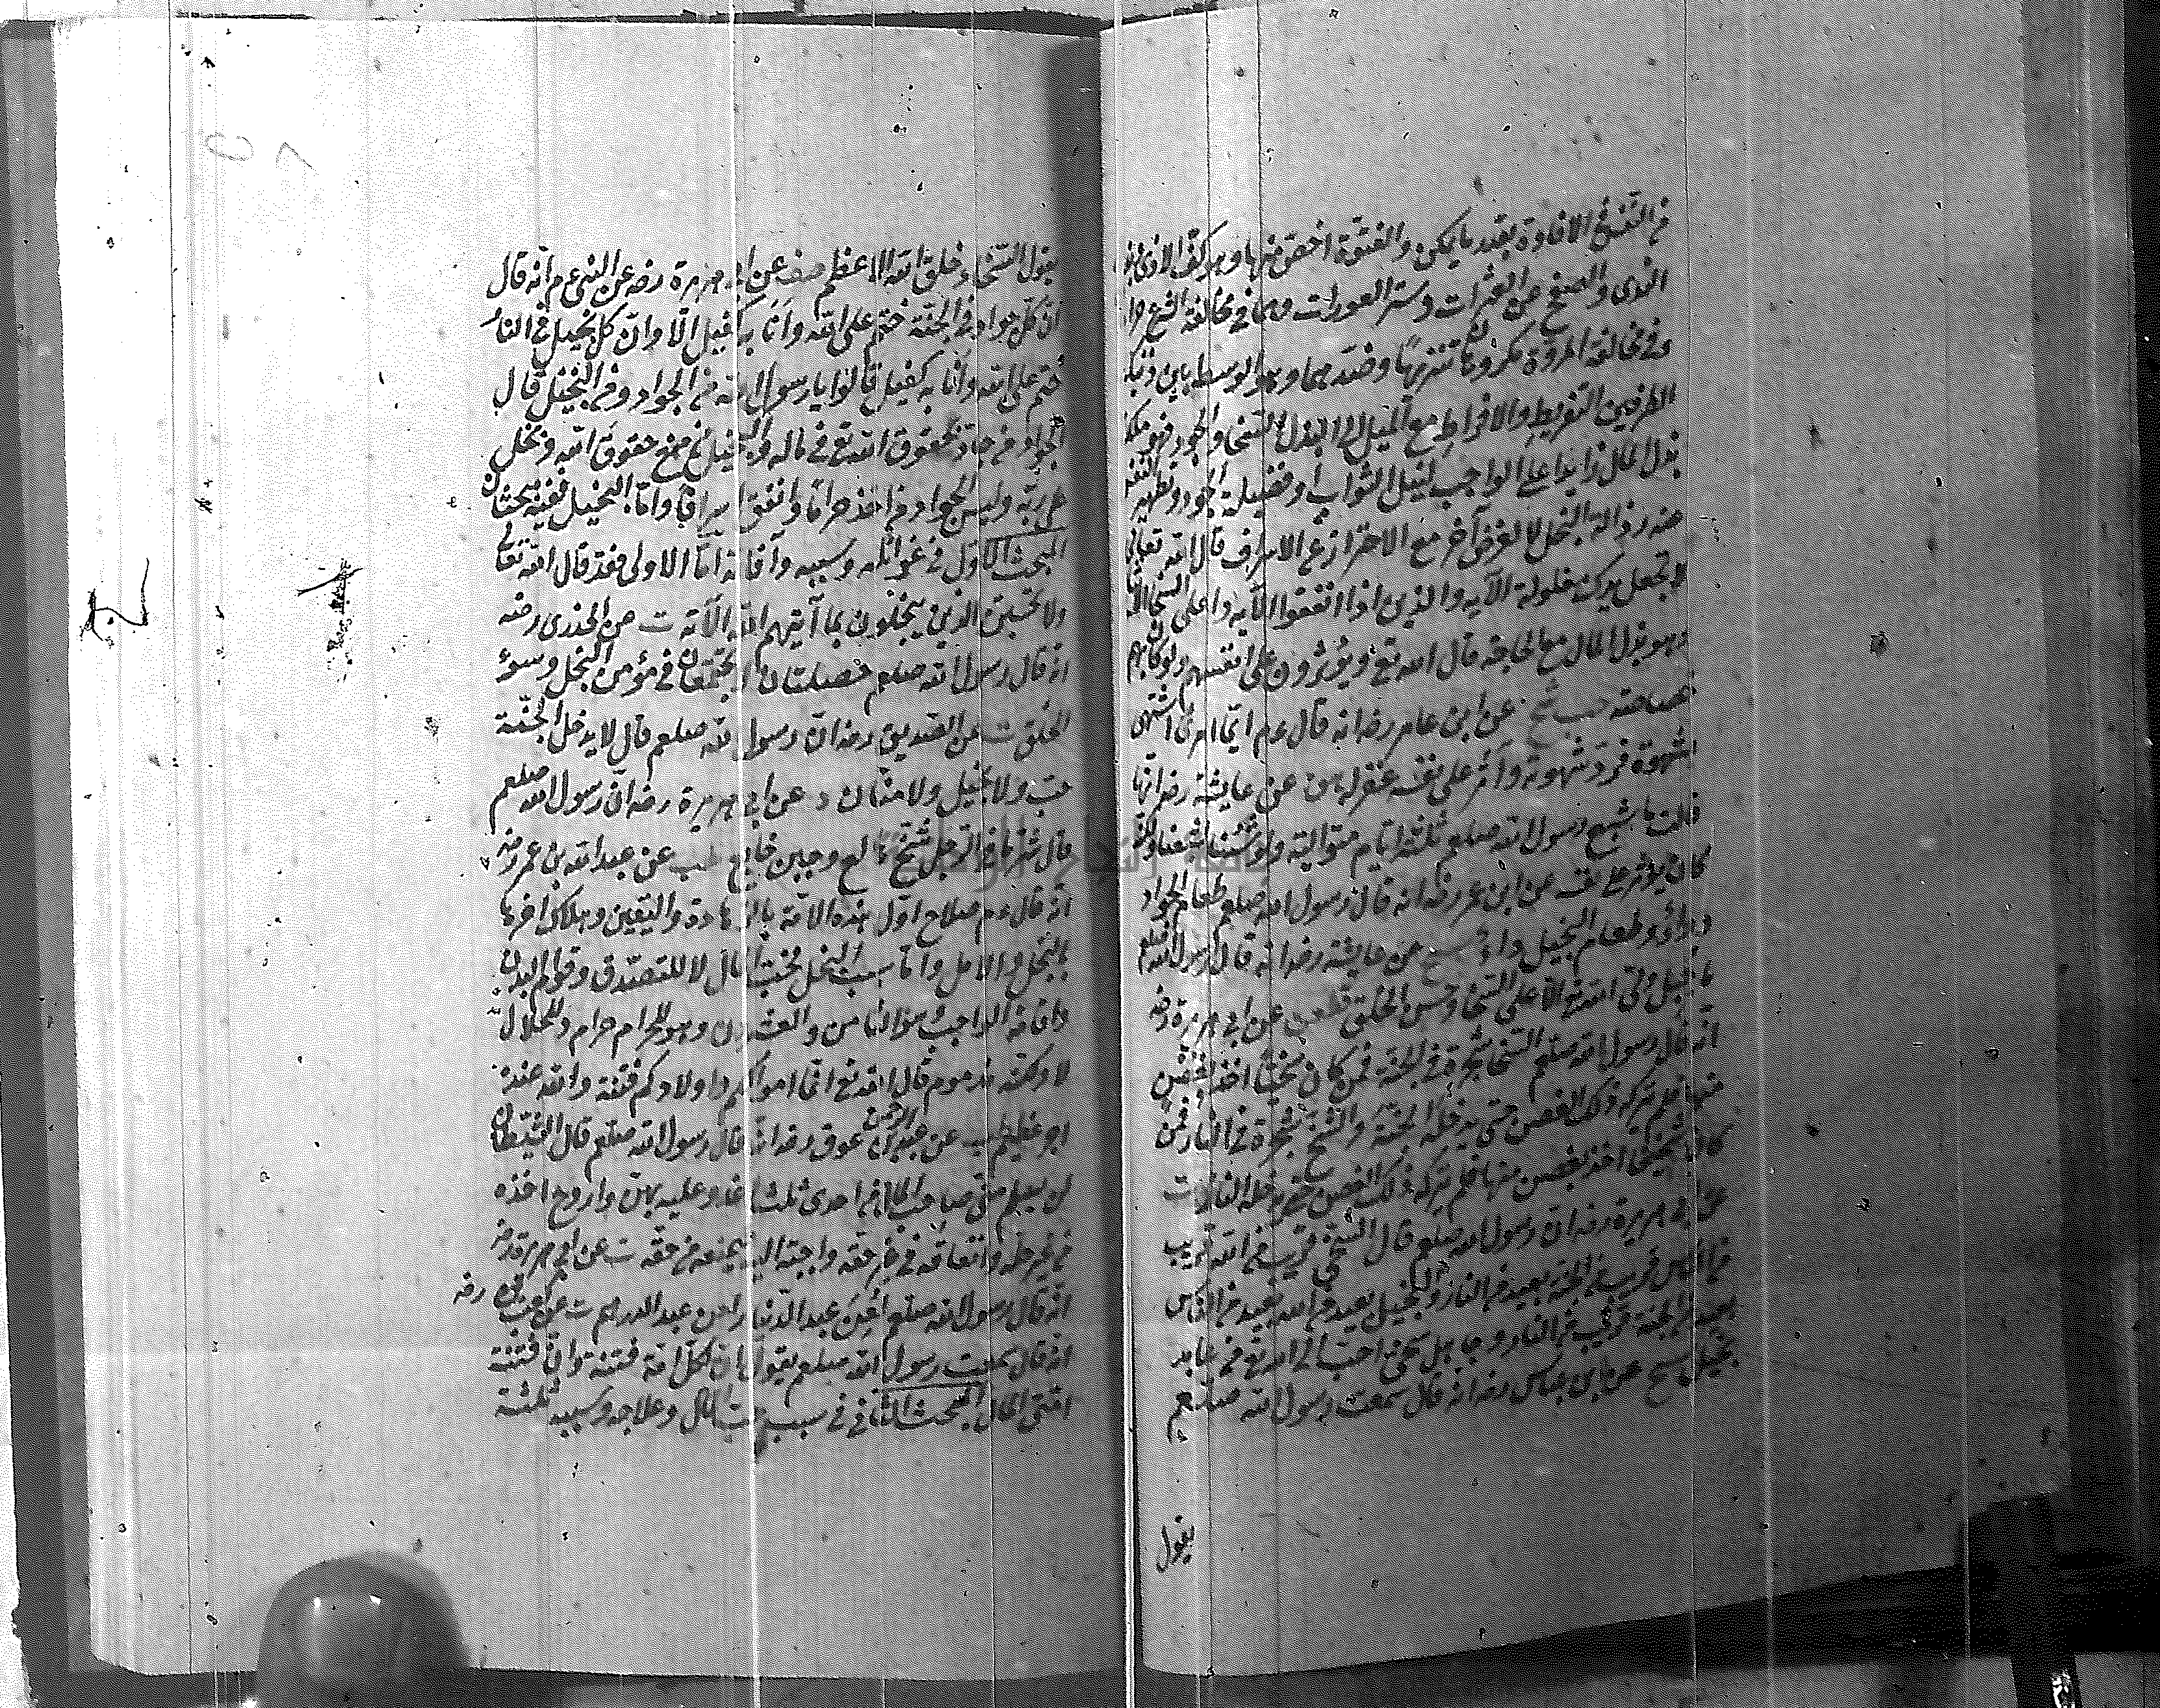 من التشبّع الافادة بقدر ما يمكن والفتوة اخصّ منها وهو كفّ الاذى وبذل
الندى والصفح عن العثرات وستر العورات وهما في مخالفة الشرع حرام
وفي مخالفة المروّة مكروهان تنزيها وضدّهما وهو الوسط بين ذينك
الطرفين التفريط والافراط مع الميل الى البذل السخا والجود فهو ملكة
بذل المال زايدا على الواجب لنيل الثواب او فضيلة الجود وتطهير النفس
عن رذالة البخل لا لغرض آخر مع الاحتراز عن الاسراف قال الله تعالى
لا تجعل يدك مغلولة الآية والذين اذا انفقوا الآية واعلى السخا الايثار
وهو بذل المال مع الحاجة قال الله تع ويؤثرون على انفسهم ولو كان بهم
خصاصة حب شخ عن ابن عامر رضه انه قال عم ايّما امرئ اشتهى
شهوة فردّ شهوته وآثر على نفسه غفر له هن عن عايشة رضه انها
قالت ما شبع رسول الله صلعم ثلثة ايام متوالية ولو شئنا لشبعنا ولكنه
كان يؤثر على نفسه عن ابن عمر رضه انه قال رسول الله صلعم طعام الجواد
دواء وطعام البخيل داء شيخ عن عايشة رضه انه قال رسول الله صلعم
ما جبل وليّ الله تع الا على السخا وحسن الخلق قطعن عن ابي هريرة رضه
انه قال رسول الله صلعم السخا شجرة في الجنة فمن كان سخيّا اخذ بغصن
منها فلم يتركه ذلك الغصن حتى يدخله الجنة والشحّ شجرة في النار فمن
كان شحيحا اخذ بغصن منها فلم يتركه ذلك الغصن حتى يدخله النار ت
عن ابي هريرة رضه ان رسول الله صلعم قال السخيّ قريب من الله قريب
من الناس قريب من الجنة بعيد من النار والبخيل بعيد من الله بعيد من الناس
بعيد من الجنة قريب من النار وجاهل سخيّ احبّ الى الله تع من عابد
بخيل شيخ عن ابن عباس رضه انه قال سمعت رسول الله صلعم
يقول
يقول السخاء خلق الله الاعظم صف عن ابي هريرة رضه عن النبي عم انه قال
ان كل جواد في الجنة حتم على الله وانا به كفيل الا وان كل بخيل في النار
حتم على الله وانا به كفيل قالوا يا رسول الله من الجواد ومن البخيل قال
الجواد من جاد بحقوق الله تع في ماله والبخيل من منع حقوق الله وبخل
على ربه وليس الجواد من اخذ حراما وانفق اسرافا واما البخيل ففيه مبحثان
المبحث الاول في غوائله وسببه وآفاته اما الاولى فقد قال الله تعالى
ولا تحسبنّ الذين يبخلون بما آتيهم الله الآية ت عن الخدري رضه
انه قال رسول الله صلعم خصلتان لا تجتمعان في مؤمن البخل وسوء
الخلق ت عن الصديق رضه ان رسول الله صلعم قال لا يدخل الجنة
خبّ ولا بخيل ولا منّان د عن ابي هريرة رضه ان رسول الله صلعم
قال شرّ ما في الرجل شحّ هالع وجبن خالع طب عن عبد الله بن عمر رضه
انه قال عم صلاح اول هذه الامة بالزهادة واليقين وهلاك اخرها
بالبخل والامل واما سبب البخل فحبّ المال لا للتصدق وقوام البدن
واقامة الواجب وهو الثامن والعشرون وهو للحرام حرام وللحلال
لا ولكنه مذموم قال الله تع انما اموالكم واولادكم فتنة والله عنده
اجر عظيم طب عن عبد الرحمن بن عوف رضه انه قال رسول الله صلعم قال الشيطان
لن يسلم مني صاحب المال من احدى ثلث اغدو عليه بهنّ واروح اخذه
من غير حله وانفاقه في غير حقه واحبّبه اليه فيمنعه من حقه ت عن ابي هريرة رضه
انه قال رسول الله صلعم لعن عبد الدنيا ولعن عبد الدرهم ت عن كعب رضه
انه قال سمعت رسول الله صلعم يقول ان لكل امة فتنة وان فتنة
امتي المال المبحث الثاني في سبب حب المال وعلاجه وسببه ثلثة